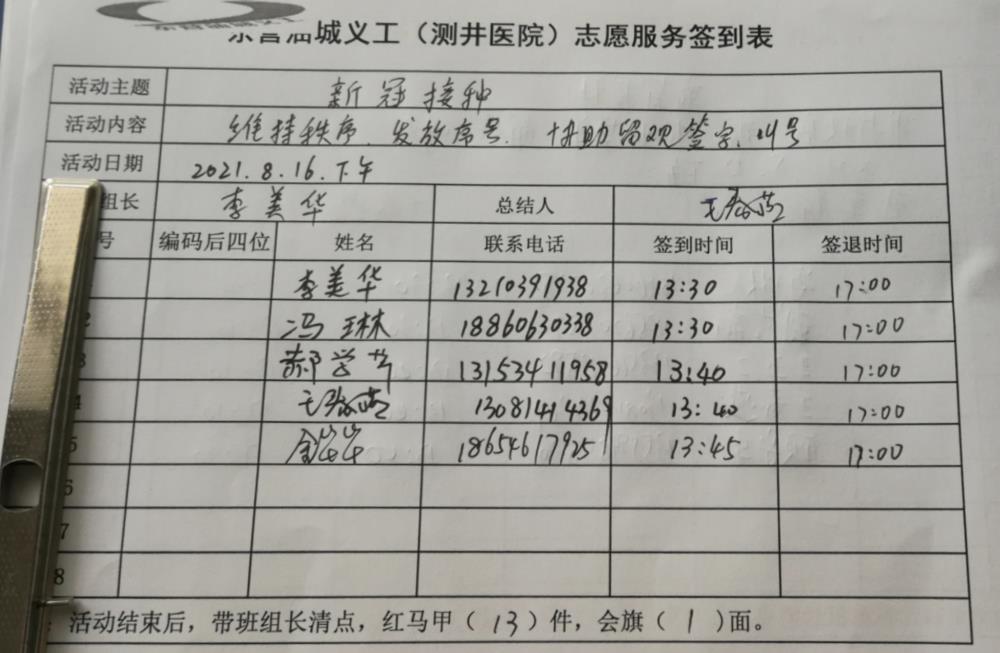 东营油城义工（测井医院）志愿服务签到表
活动主题 新冠接种
活动内容 维持秩序、发放序号、协助留观签字、叫号
活动日期 2021.8.16.下午
组长 李美华 总结人
号 编码后四位 姓名 联系电话 签到时间 签退时间
李美华 13210391938 13:30 17:00
2 冯琳 18860630338 13:30 17:00
3 郝学芹 13153411958 13:40 17:00
4 13081414369 13:40 17:00
5 18654617925 13:45 17:00
6
7
8
活动结束后，带班组长清点，红马甲（13）件，会旗（1）面。